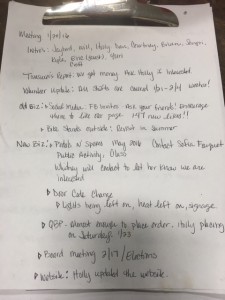 Meeting 1/20/16
Intros: Jaylord, Will, Holly, Courtney, Kristin,
Kyle,
Treasurer's Report: We got money Holly is interested
Volunteer Update: All shifts are covered 1/21-2/4
Old Biz: Social Media: FB Invites - Ask your friends! Encourage
others to like our page 197 new likes!!
Bike Stands outside; Revisit in Summer
New Biz: Pedals N Spokes May 2016 Contact Sofia
Public Activity, Class
Whitney will contact to let her know we are
interested
Door Code Change
Lights being left on, heat left on, signage
QBP - Almost enough to place order - Holly placing
on Saturday 1/23
Board Meeting 2/17/Elections
Website: Holly updated the website.